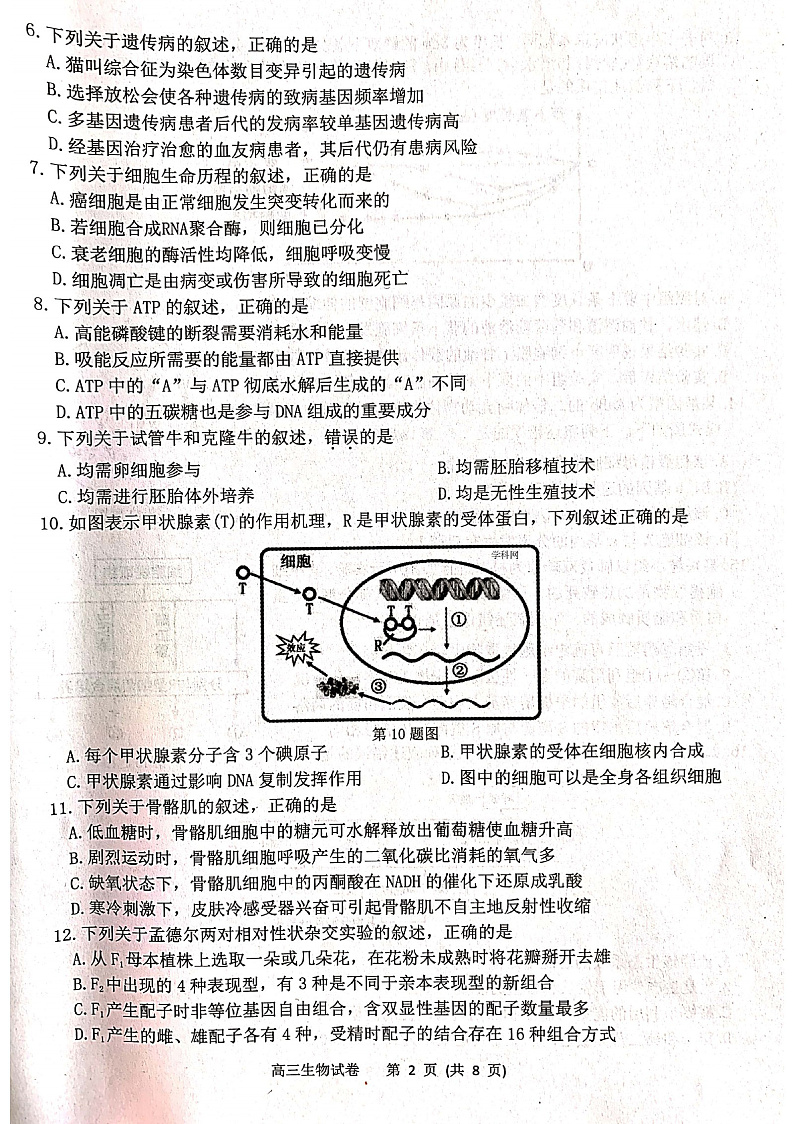 6. 下列关于遗传病的叙述，正确的是
A. 猫叫综合征为染色体数目变异引起的遗传病
B. 选择放松会使各种遗传病的致病基因频率增加
C. 多基因遗传病患者后代的发病率较单基因遗传病高
D. 经基因治疗治愈的血友病患者，其后代仍有患病风险
7. 下列关于细胞生命历程的叙述，正确的是
A. 癌细胞是由正常细胞发生突变转化而来的
B. 若细胞合成RNA聚合酶，则细胞已分化
C. 衰老细胞的酶活性均降低，细胞呼吸变慢
D. 细胞凋亡是由病变或伤害所导致的细胞死亡
8. 下列关于 ATP 的叙述，正确的是
A. 高能磷酸键的断裂需要消耗水和能量
B. 吸能反应所需要的能量都由 ATP 直接提供
C. ATP 中的“A”与 ATP 彻底水解后生成的“A”不同
D. ATP 中的五碳糖也是参与 DNA 组成的重要成分
9. 下列关于试管牛和克隆牛的叙述，错误的是
A. 均需卵细胞参与 B. 均需胚胎移植技术
C. 均需进行胚胎体外培养 D. 均是无性生殖技术
10. 如图表示甲状腺素(T)的作用机理，R 是甲状腺素的受体蛋白，下列叙述正确的是
细胞 学科网
T T T T
R ①
效应 ②
③
第 10 题图
A. 每个甲状腺素分子含 3 个碘原子 B. 甲状腺素的受体在细胞核内合成
C. 甲状腺素通过影响 DNA 复制发挥作用 D. 图中的细胞可以是全身各组织细胞
11. 下列关于骨骼肌的叙述，正确的是
A. 低血糖时，骨骼肌细胞中的糖元可水解释放出葡萄糖使血糖升高
B. 剧烈运动时，骨骼肌细胞呼吸产生的二氧化碳比消耗的氧气多
C. 缺氧状态下，骨骼肌细胞中的丙酮酸在 NADH 的催化下还原成乳酸
D. 寒冷刺激下，皮肤冷感受器兴奋可引起骨骼肌不自主地反射性收缩
12. 下列关于孟德尔两对相对性状杂交实验的叙述，正确的是
A. 从 F₁母本植株上选取一朵或几朵花，在花粉未成熟时将花瓣掰开去雄
B. F₂中出现的 4 种表现型，有 3 种是不同于亲本表现型的新组合
C. F₁产生配子时非等位基因自由组合，含双显性基因的配子数量最多
D. F₁产生的雌、雄配子各有 4 种，受精时配子的结合存在 16 种组合方式
高三生物试卷 第 2 页 (共 8 页)